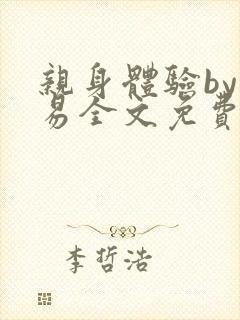 親身體驗by
易全文免費
李哲浩